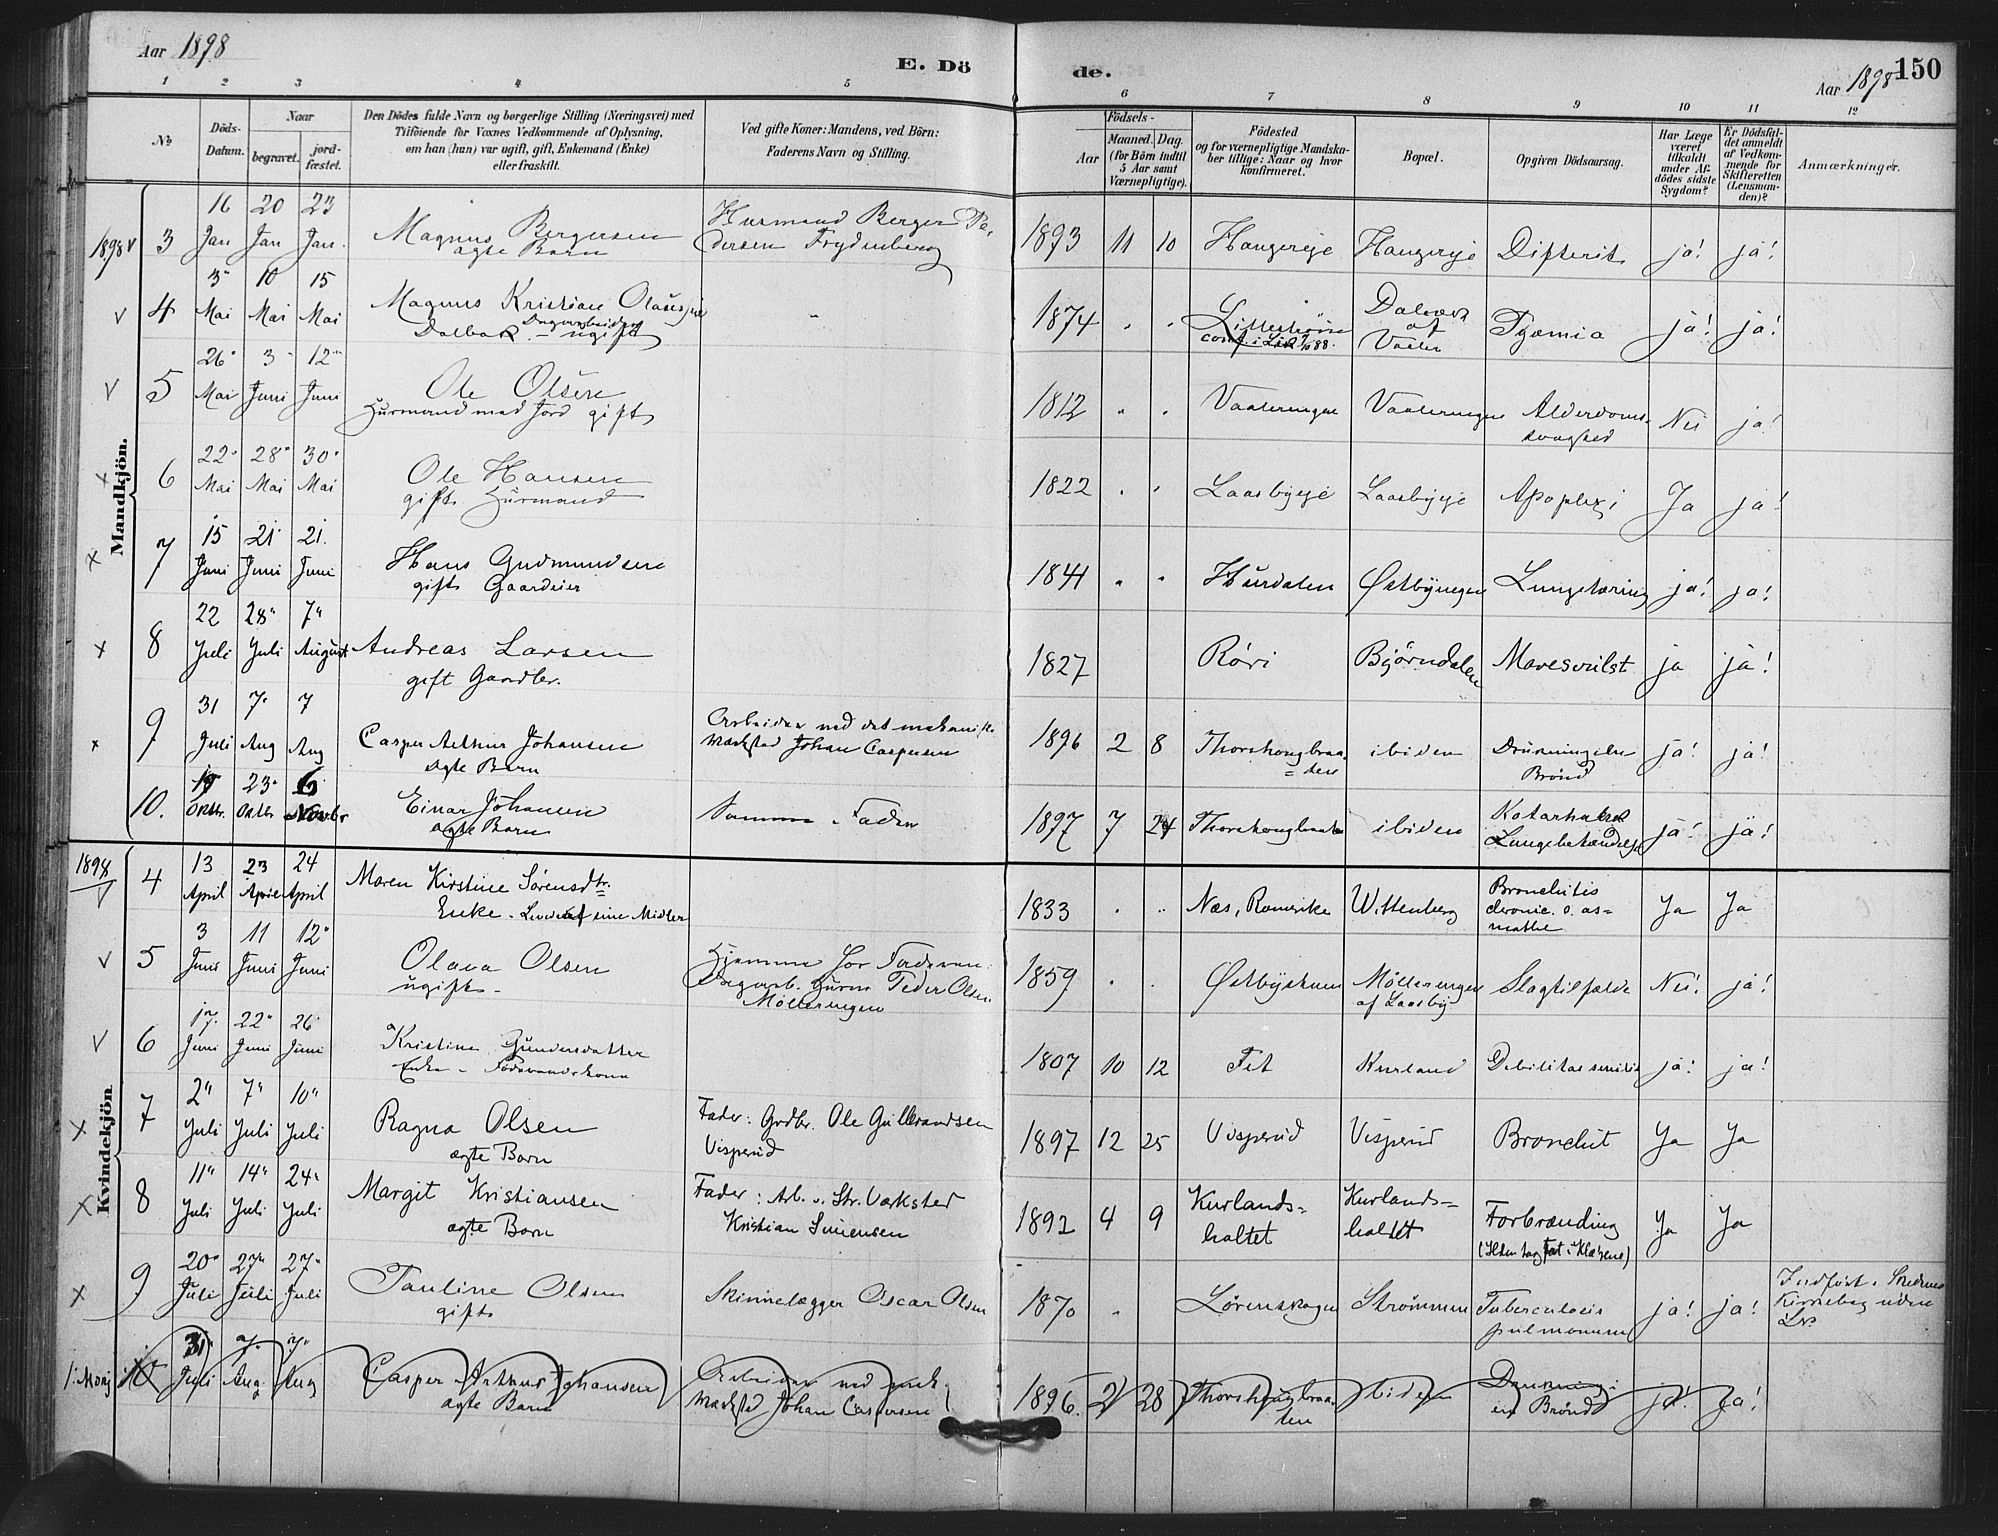 Aar 1898
E. Dö
de.
Aar 1898
150
1 2 3 4 5
6 7 8 9 10 11 12
No
Döds-
Datum.
Naar
begravet.
jord-
fæstet.
Den Dödes fulde Navn og borgerlige Stilling (Næringsvei) med
Tilföiende for Voxnes Vedkommende af Oplysning,
om han (hun) var ugift, gift, Enkemand (Enke)
eller fraskilt.
Ved gifte Koner: Mandens, ved Börn:
Faderens Navn og Stilling.
Födsels-
Aar
Maaned. Dag.
(for Börn indtil
5 Aar samt
Værnepligtige).
Födested
og for værnepligtige Mandska-
ber tillige: Naar og hvor
konfirmeret.
Bopæl.
Opgiven Dödsaarsag.
Har Læge
været
tilkaldt
under Af-
dödes sidste
Sygdom?
Er Dödsfal-
det anmeldt
af Vedkom-
mende for
Skifteretten
(Lensman-
den)?
Anmærkninger.
Mandkjön.
1898 v
3
16 Jan
20 Jan
23 Jan.
Magnus Bergersen
ægte Barn
Husmand Berger Pe-
dersen Frydenberg
1893 11 10
Haugereje
Haugereje
Difterit
ja! ja!
v 4
3 Mai
10 Mai
15 Mai
Magnus Kristian Olaussen
Dalbak - Dagarbeider ugift
1874
Lillestrøm
Vaaler
Pyæmia
ja! ja!
v 5
26 Mai
3 Juni
12 Juni
Ole Olsen
Husmand med Jord gift
1812
Vaaleringen
Vaaleringen
Alderdoms-
svaghed
Nei ja!
x 6
22 Mai
28 Mai
30 Mai
Ole Hansen
gift Husmand
1822
Laasbyeje
Laasbyeje
Apoplexi
Ja ja!
x 7
15 Juni
21 Juni
21. Juni
Hans Gudmundsen
gift Gaardeier
1841
Hurdalen
Østbyengen
Lungetæring
ja! ja!
x 8
22 Juli
28 Juli
7 August
Andreas Larsen
gift Gaardbr.
1827
Røri
Bjørndalen
Mavesvulst
ja ja!
x 9
31 Juli
7 Aug
7 Aug
Casper Arthur Johansen
ægte Barn
Arbeider ved det mekaniske
Værksted Johan Caspersen
1896 2 8
Thorshougbraa-
=ten
ibidem
Brønd
ja! ja!
10.
Oktbr.
23 Oktbr
6 Novbr
Einar Johansen
ægte Barn
Samme Fader
1897 7 24
Thorshougbraaten
ibidem
Katarhalsk
Lungebetændelse
ja! ja!
Kvindekjön
1898
4
13 April
23 April
24 April
Maren Kirstine Sörensdtr.
Enke - Lever af sine Midler
1833
Næs, Romerike
Wittenberg
Bronchitis
chronic. o. as=
mathe
Ja Ja
v 5
3 Juni
11 Juni
12 Juni
Olava Olsen
ugift -
Hjemme hos Faderen:
Dagarb. Husm Peder Olsen
Mölleringen
1859
Østbyskoven
Mölleringen
af Laasby
Slagtilfælde
Nei! ja!
v 6
17. Juni
22 Juni
26 Juni
Kristine Gundersdatter
Enke - Föderaadskone
1807 10 12
Fet
Kurland
Debilitas senilis
ja! ja!
x 7
2 Juli
7 Juli
10 Juli
Ragna Olsen
ægte Barn
Fader: Grdbr. Ole Gulbrandsen
Visperud
1897 12 25
Visperud
Visperud
Bronchit
Ja Ja
x 8
11 Juli
14 Juli
24 Juli
Margit Kristiansen
ægte Barn
Fader: Arb. v. Str. Værksted
Kristian Simensen
1892 4 9
Kurlands=
haltet
Kurlands=
haltet
Forbrænding
(Ilden tog Fat i Klærne)
Ja Ja
x 9
20 Juli
27 Juli
27 Juli
Pauline Olsen
gift
Skinnelægger Oscar Olsen
1870
Lørenskogen
Strømmen
Tuberculosis
pulmonum
ja! ja!
Indført i
Kirkebog uden
No
10
31 Juli
7 Aug.
7 Aug
Casper Arthur Johansen
ægte Barn
Arbeider ved mek.
Værksted Johan Caspersen
1896. 2 28
Thorshougbraa-
ten
ibidem
Drukning i
en Brønd
ja! Ja!